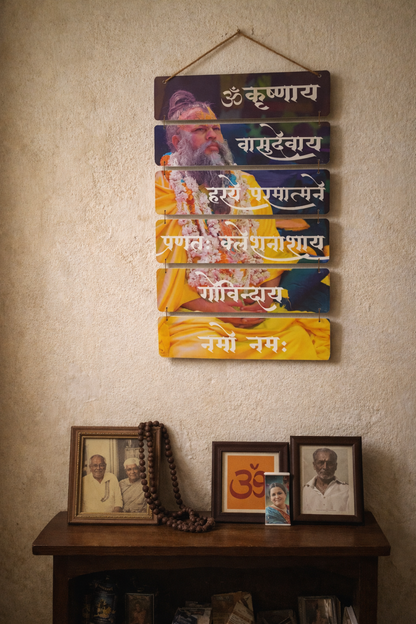 ॐ कृष्णाय
वासुदेवाय
हरये परमात्मने
प्रणतः क्लेशनाशाय
गोविन्दाय
नमो नमः
ॐ